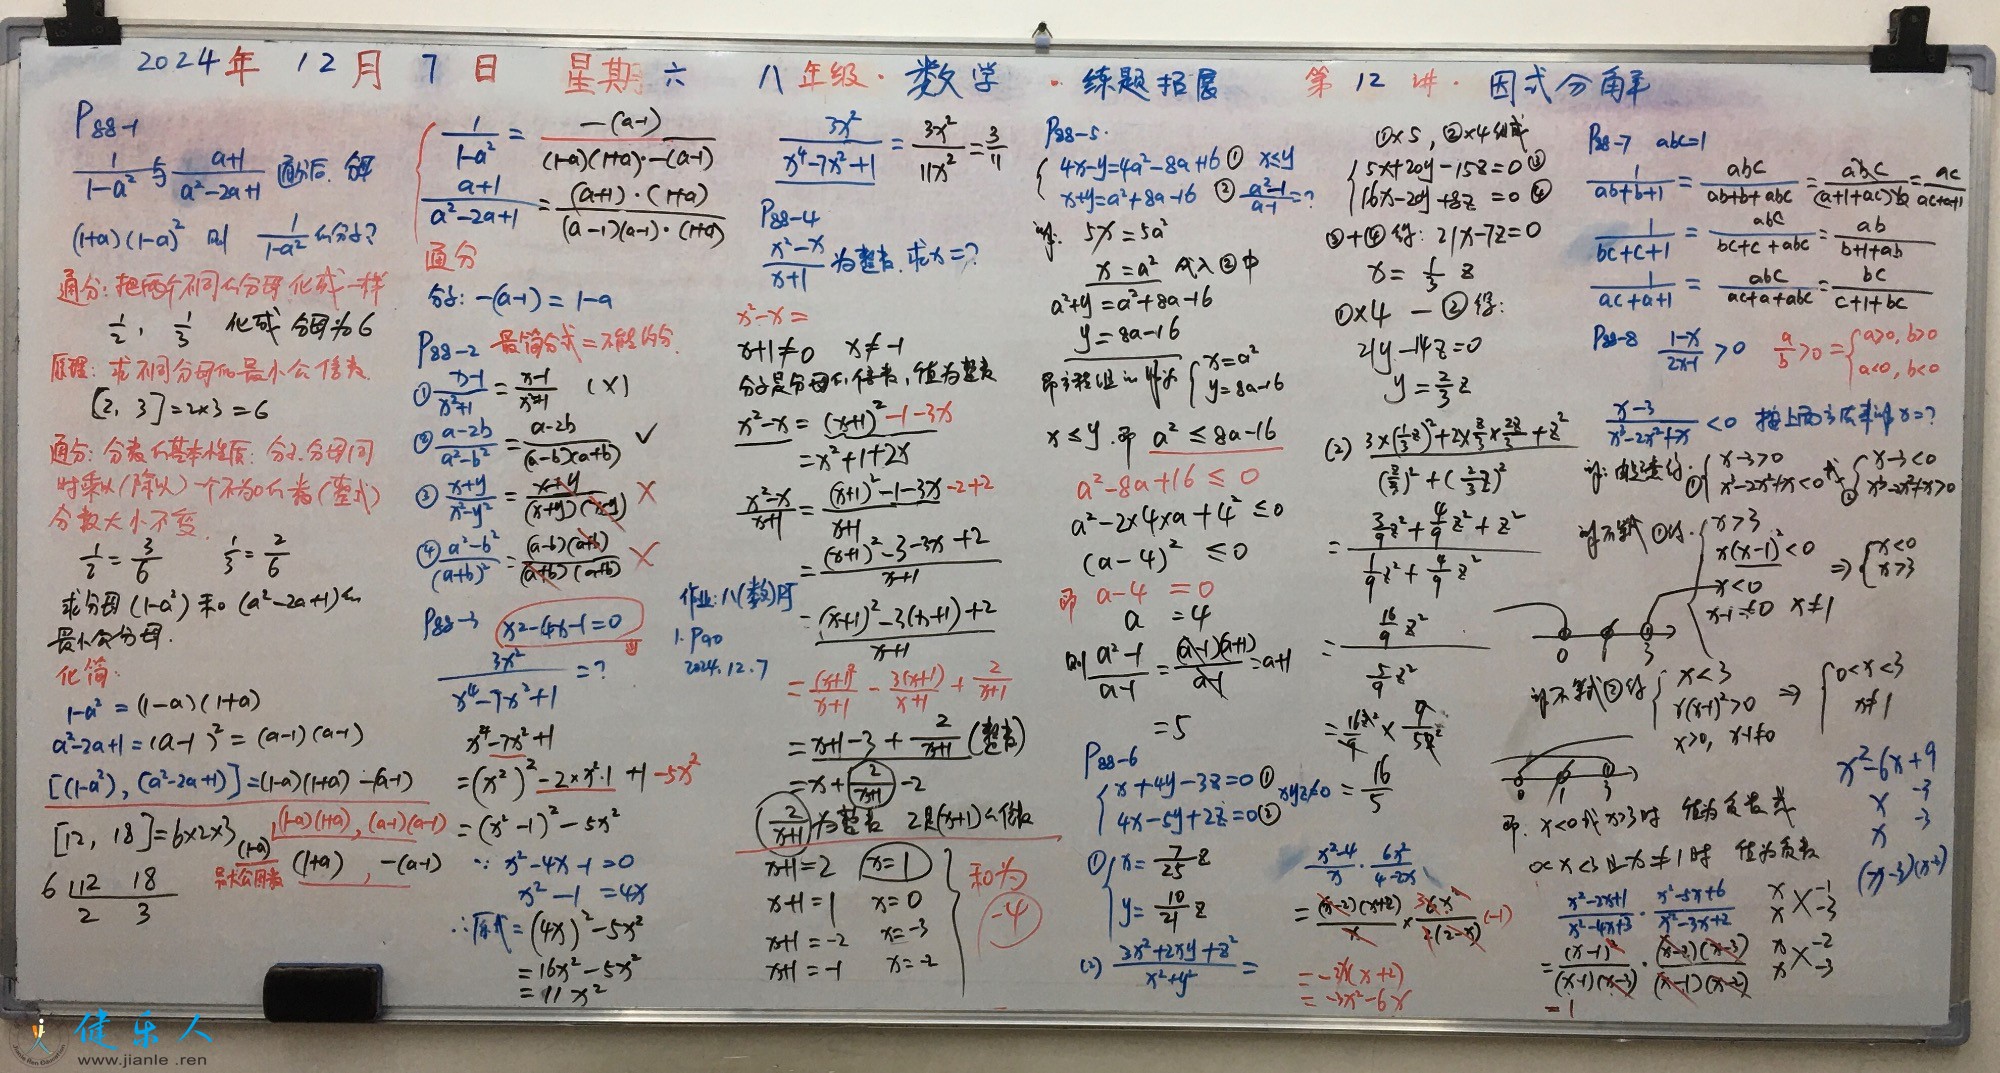 2024年 12月 7日 星期六 八年级·数学·练题拓展 第12讲·因式分解
P88-1
1/(1-a²) 与 (a+1)/(a²-2a+1) 通分后, 分母
(1+a)(1-a)² 则 1/(1-a²) 的分子?
通分: 把两个不同的分母化成一样
1/2, 1/3 化成 分母为6
原理: 求不同分母的最小公倍数.
[2, 3]=2×3=6
通分: 分数的基本性质: 分子.分母同
时乘以(除以)一个不为0的数(整式)
分数大小不变.
1/2=3/6 1/3=2/6
求分母 (1-a²) 和 (a²-2a+1) 的
最小公分母.
化简:
1-a²=(1-a)(1+a)
a²-2a+1=(a-1)²=(a-1)(a-1)
[(1-a²), (a²-2a+1)]=(1-a)(1+a)·-(a-1)
[12, 18]=6×2×3
(1-a)(1+a), (a-1)(a-1)
(1+a), -(a-1)
最大公因数
6 12 18
2 3
1/(1-a²) = -(a-1)/((1-a)(1+a)·-(a-1))
(a+1)/(a²-2a+1) = (a+1)·(1+a)/((a-1)(a-1)·(1+a))
通分
分子: -(a-1)=1-a
P88-2 最简分式=不能约分.
① (x-1)/(x²+1) = (x-1)/(x²+1) (×)
② (a-2b)/(a²-b²) = (a-2b)/((a-b)(a+b)) ✓
③ (x+y)/(x²-y²) = (x+y)/((x+y)(x-y)) ×
④ (a²-b²)/(a+b)² = (a-b)(a+b)/((a+b)(a+b)) ×
P88-3 x²-4x-1=0
3x²/(x⁴-7x²+1) =?
x⁴-7x²+1
=(x²)²-2×x²·1+1-5x²
=(x²-1)²-5x²
∵ x²-4x-1=0
x²-1=4x
∴原式=(4x)²-5x²
=16x²-5x²
=11x²
3x²/(x⁴-7x²+1) = 3x²/11x² = 3/11
P88-4
(x²-x)/(x+1) 为整数, 求x=?
x²-x=
x+1≠0 x≠-1
分子是分母的倍数, 值为整数
x²-x=(x+1)²-1-3x
=x²+1+2x
(x²-x)/(x+1) = ((x+1)²-1-3x-2+2)/(x+1)
=((x+1)²-3-3x+2)/(x+1)
=((x+1)²-3(x+1)+2)/(x+1)
=(x+1)²/(x+1) - 3(x+1)/(x+1) + 2/(x+1)
=x+1-3+2/(x+1) (整数)
=x+2/(x+1)-2
2/(x+1) 为整数 2是(x+1)的倍数
x+1=2 x=1
x+1=1 x=0
x+1=-2 x=-3
x+1=-1 x=-2
和为
-4
作业: 八(数)
1. P90
2024.12.7
P88-5.
4x-y=4a²-8a+16 ① x≤y
x+y=a²+8a-16 ② (a²-1)/(a-1)=?
解: 5x=5a²
x=a² 代入②中
a²+y=a²+8a-16
y=8a-16
即方程组的解为 { x=a²
y=8a-16
x≤y.即 a²≤8a-16
a²-8a+16≤0
a²-2×4×a+4²≤0
(a-4)²≤0
即 a-4=0
a=4
则 (a²-1)/(a-1) = (a-1)(a+1)/(a-1) = a+1
=5
P88-6
x+4y-3z=0 ① xyz≠0
4x-5y+2z=0 ②
① { x=7/25 z
y=10/21 z
(2) (3x²+2xy+z²)/(x²+y²) =
①×5, ②×4 组成
5x+20y-15z=0 ③
16x-20y+8z=0 ④
③+④得: 21x-7z=0
x=1/3 z
①×4 - ②得:
21y-14z=0
y=2/3 z
=(3/9z²+4/9z²+z²)/(1/9z²+4/9z²)
=(16/9 z²)/(5/9 z²)
=16z²/9 × 9/5z²
=16/5
(x²-4)/x · 6x²/(4-2x)
=(x-2)(x+2)/x × 6x²/(2(2-x)) (-1)
=-3x(x+2)
=-3x²-6x
P88-7 abc=1
1/(ab+b+1) = abc/(ab+b+abc) = abc/((a+1+ac)b) = ac/(ac+a+1)
1/(bc+c+1) = abc/(bc+c+abc) = ab/(b+1+ab)
1/(ac+a+1) = abc/(ac+a+abc) = bc/(c+1+bc)
P88-8 (1-x)/(2x-1)>0 a/b>0={ a>0, b>0
a<0, b<0
(x-3)/(x³-2x²+x)<0 按上面方法求解x=?
解: 由题意得: ① { x-3>0
x³-2x²+x<0 或② { x-3<0
x³-2x²+x>0
解不等式①得. { x>3
x(x-1)²<0
x<0
x-1≠0 x≠1
⇒ { x<0
x>3
0 1 3
解不等式②得 { x<3
x(x-1)²>0
x>0, x-1≠0
⇒ { 0<x<3
x≠1
0 1 3
即. x<0或x>3时 值为负数或
0<x<3且x≠1时 值为负数
(x²-2x+1)/(x²-4x+3) · (x²-5x+6)/(x²-3x+2)
=(x-1)²/((x-1)(x-3)) · (x-2)(x-3)/((x-1)(x-2))
=1
x -1
x -3
x -2
x -3
x²-6x+9
x -3
x -3
健乐人
www.jianle.ren